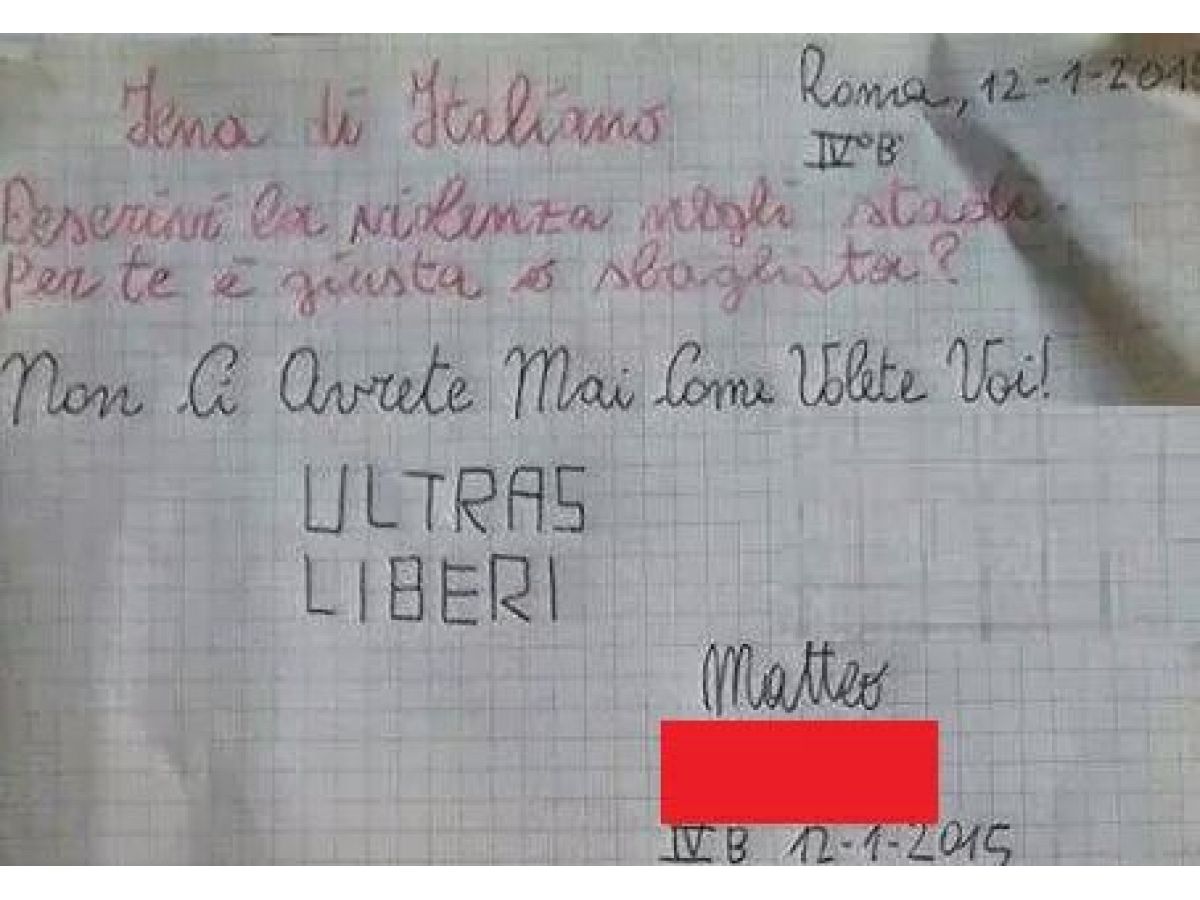 Roma, 12-1-2015
IV°B
Tema di Italiano
Descrivi la violenza negli stadi.
Per te è giusta o sbagliata?
Non Ci Avrete Mai Come Volete Voi!
ULTRAS
LIBERI
Matteo
IV B 12-1-2015